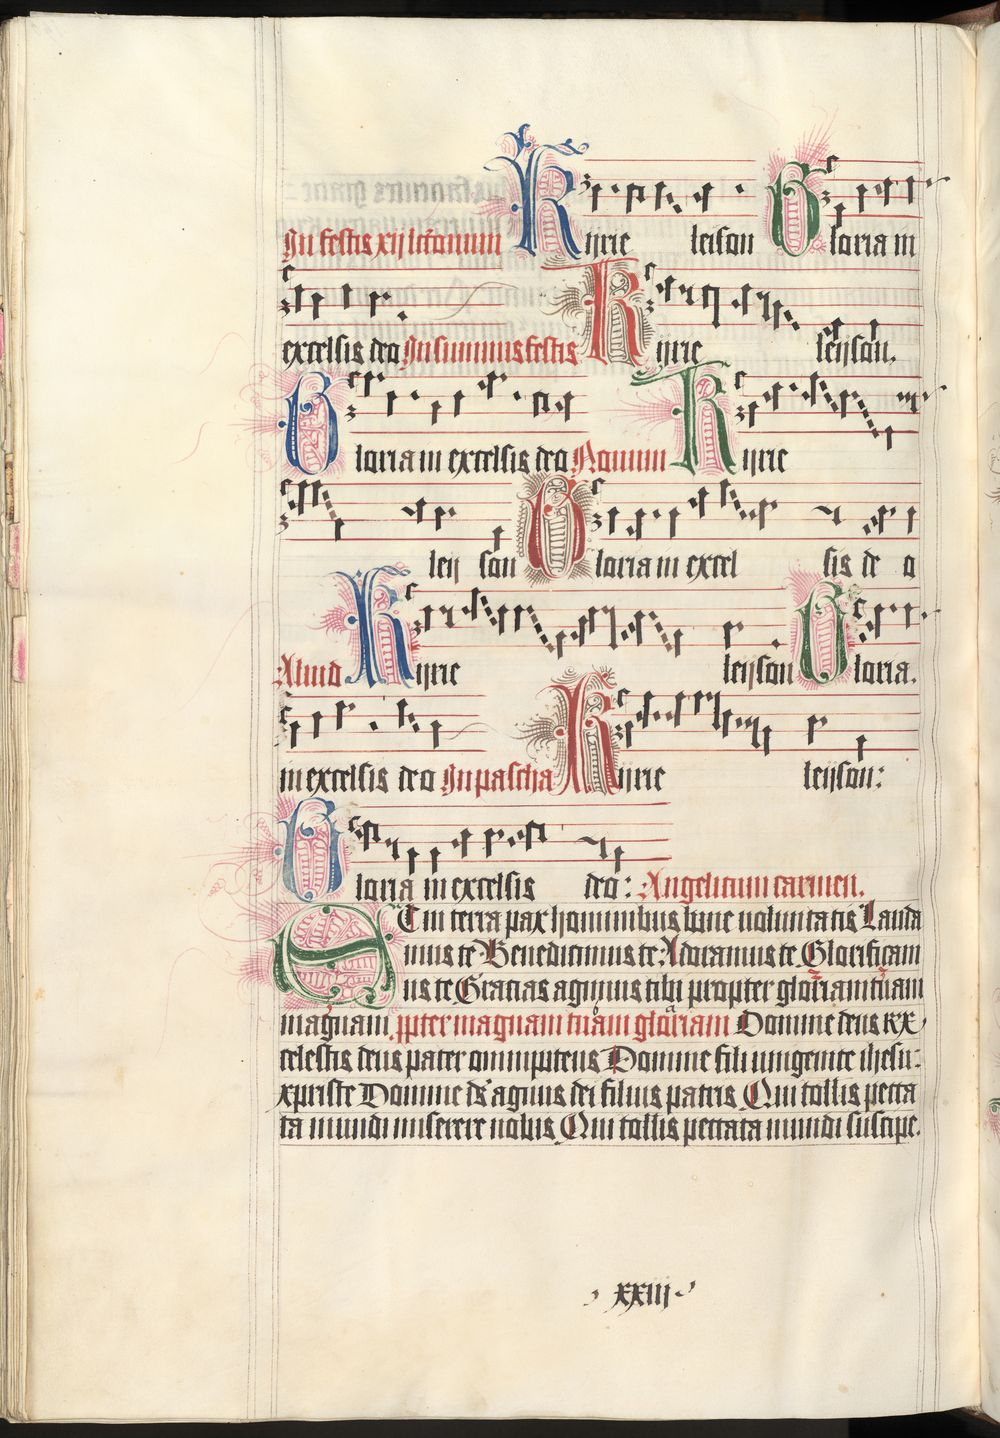 In festis xij lcōnum Kyrie leison Gloria in
excelsis deo In summis festis Kyrie leyson.
Gloria in excelsis deo Nonum Kyrie
ley son Gloria in excel sis de o
Aliud Kyrie leyson Gloria.
in excelsis deo In pascha Kyrie leyson:
Gloria in excelsis deo: Angelicum carmen.
Et in terra pax hominibus bone uoluntatis Lauda
mus te Benedicimus te Adoramus te Glorificam
us te Gracias agimus tibi propter gloriam tuam
magnam. ppter magnam tuam gloriam Domine deus rex
celestis deus pater omnipotens Domine fili unigenite ihesu:
xpriste Domine ds agnus dei filius patris Qui tollis pecca
ta mundi miserere nobis Qui tollis peccata mundi suscipe.
xxiij